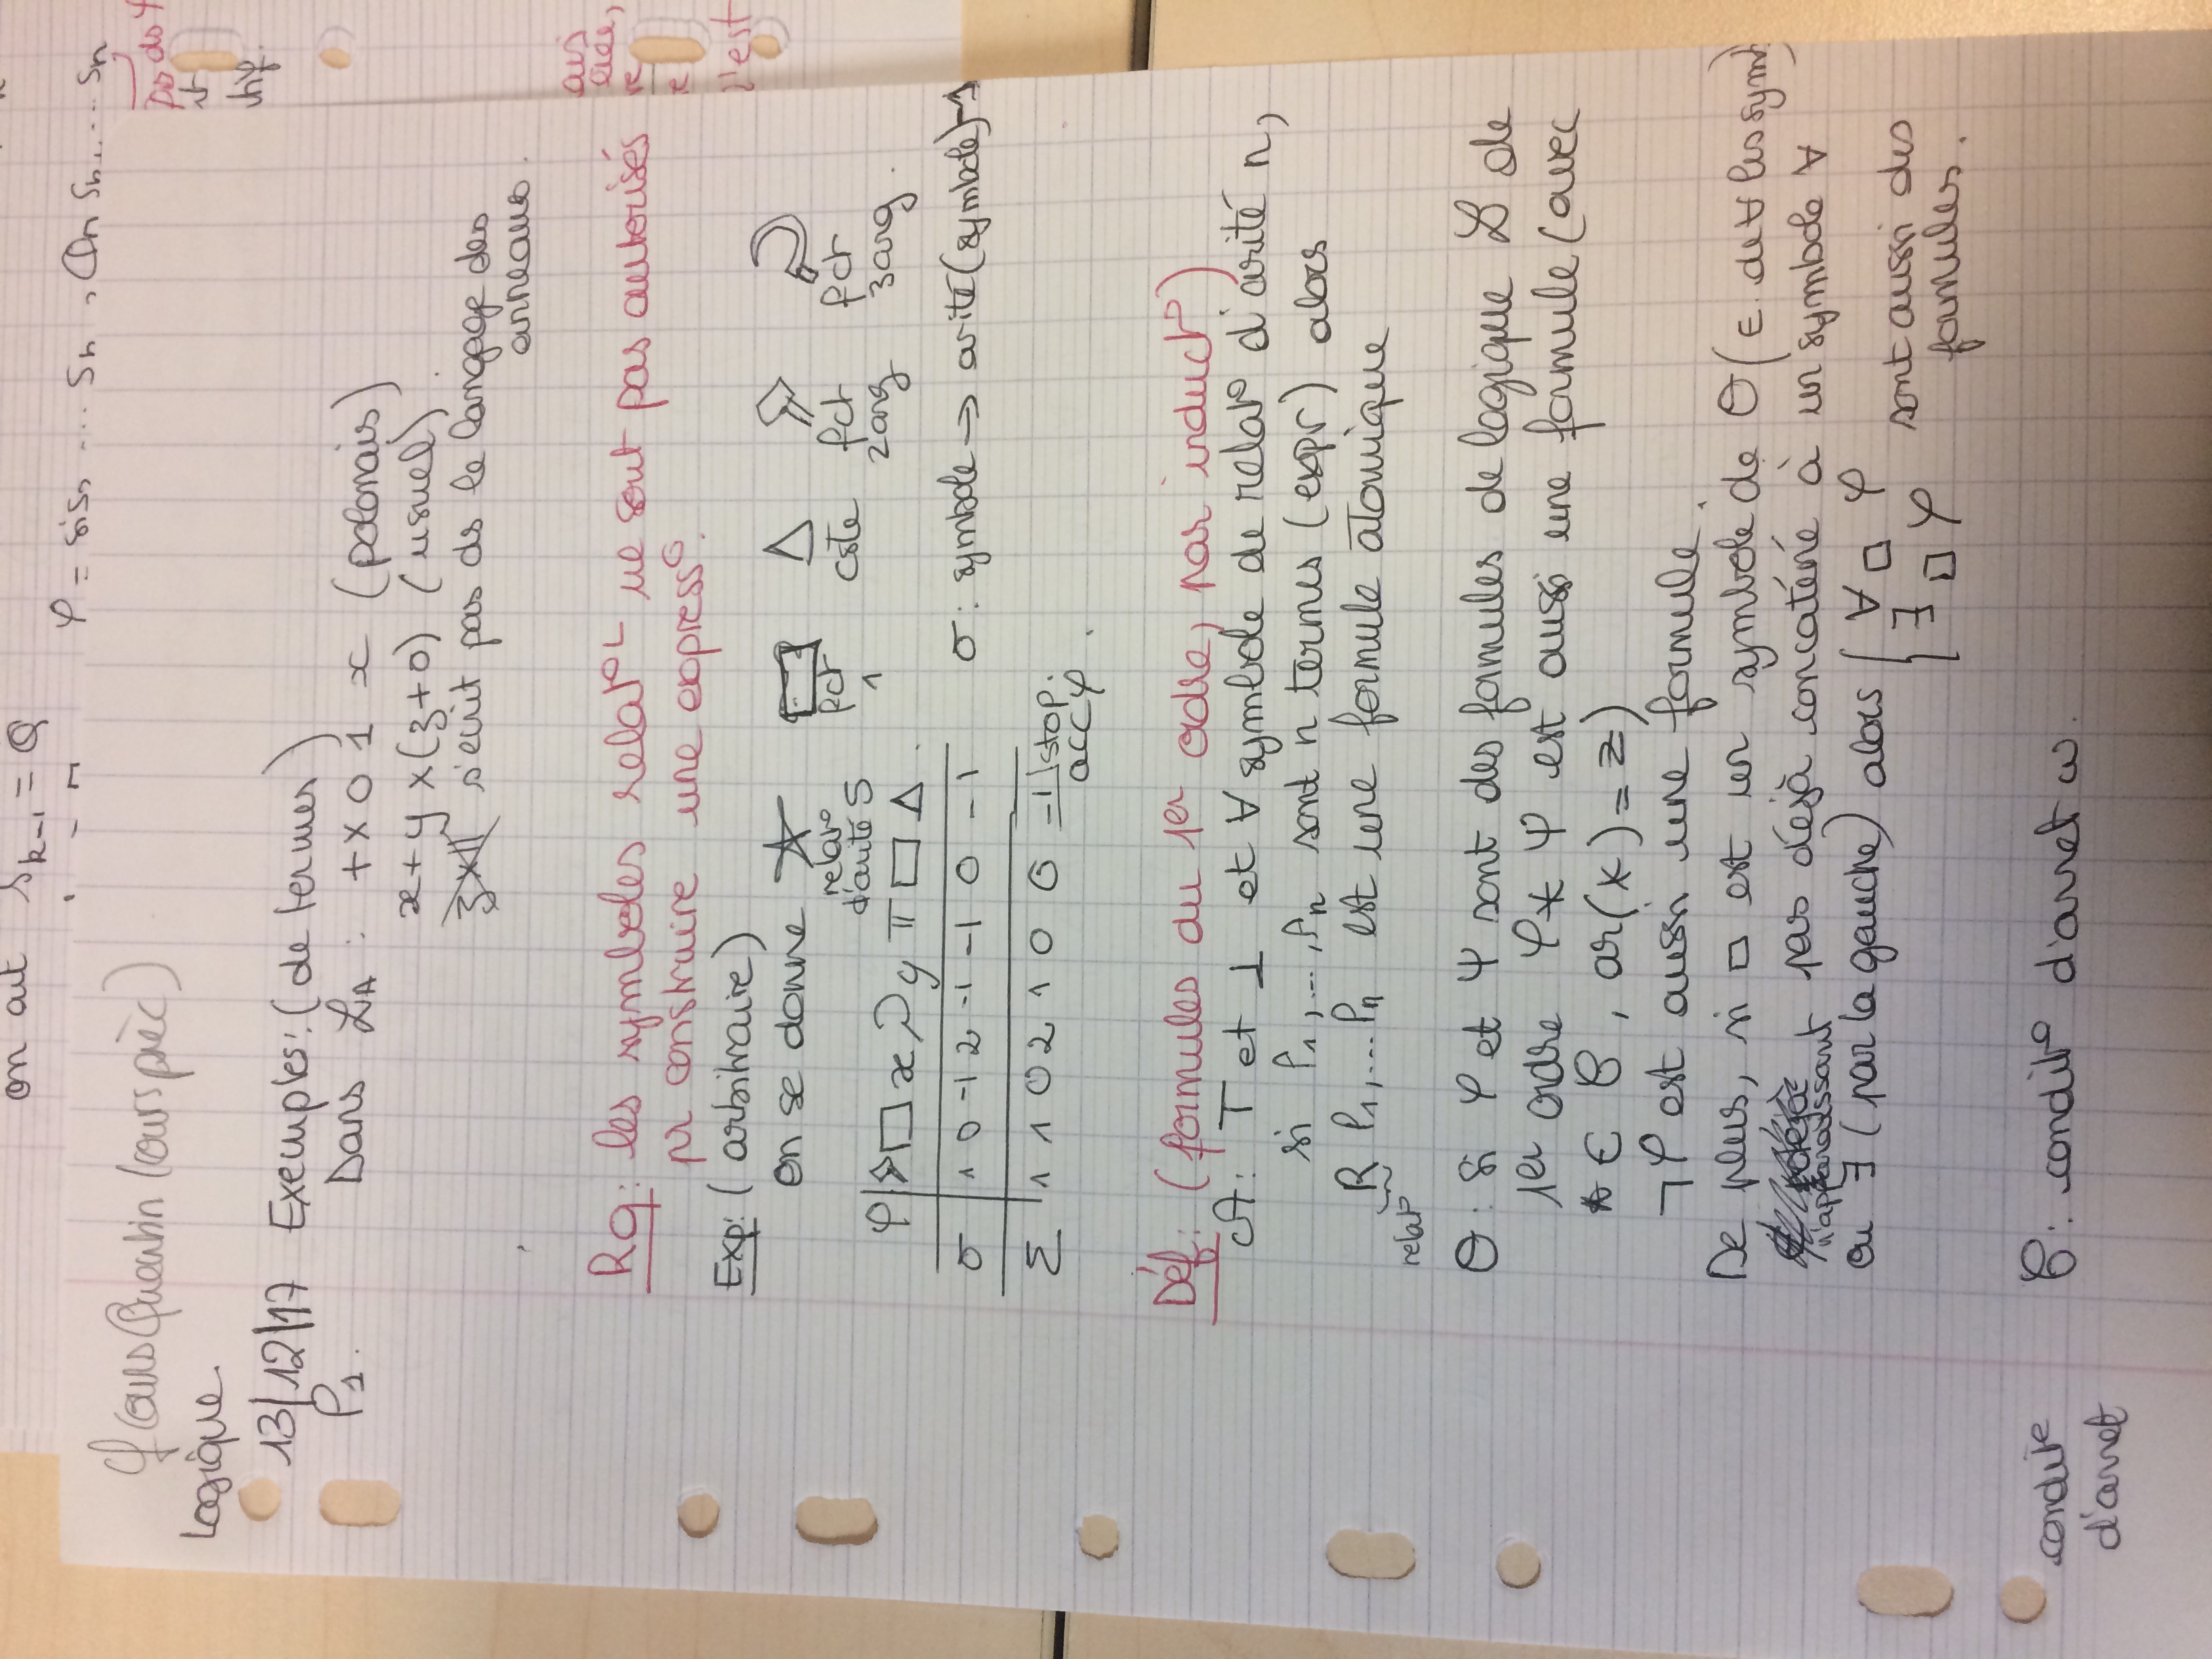 on ait S k-1 = Q
φ = s1s2 ... sn , On sn ... sn
ps ds φ
cf cours Quentin (cours préc)
Logique.
13/12/17 Exemples: (de termes)
P1. Dans ℒA : + × 0 1 x (polonais)
x + y × (z + 0) (usuel).
s'ecrit pas ds le langage des
anneaux.
Rq: les symboles relat° L ne sont pas autorisés
pr construire une express°.
Exp: (arbitraire)
On se donne ☆ ▭ △
relat° d'arité 5 fct 1 cste fct 2 arg fct 3 arg.
φ | □ x y π □ △ .
σ | 1 0 -1 2 -1 -1 0 -1 σ : symbole → arité(symbole)-1
Σ | 1 1 0 2 1 0 0 -1 | stop.
acc φ .
Déf: (formules du 1er ordre, par induct°)
A: ⊤ et ⊥ et ∀ symbole de relat° d'arité n,
si P1, ..., Pn sont n termes (expr) alors
R P1, ... Pn est une formule atomique
relat°
Θ : Si φ et ψ sont des formules de logique ℒ de
1er ordre φ * ψ est aussi une formule (avec
* ∈ C , ar(*) = 2)
¬φ est aussi une formule.
De plus, si □ est un symbole de Θ (∈. de ∀ les symb)
n'apparaissant pas déjà concaténé à un symbole ∀
ou ∃ (par la gauche) alors { ∀ □ φ
∃ □ φ sont aussi des
formules.
condit°
d'arret
C : condit° d'arret ω.
ais
re
l'est